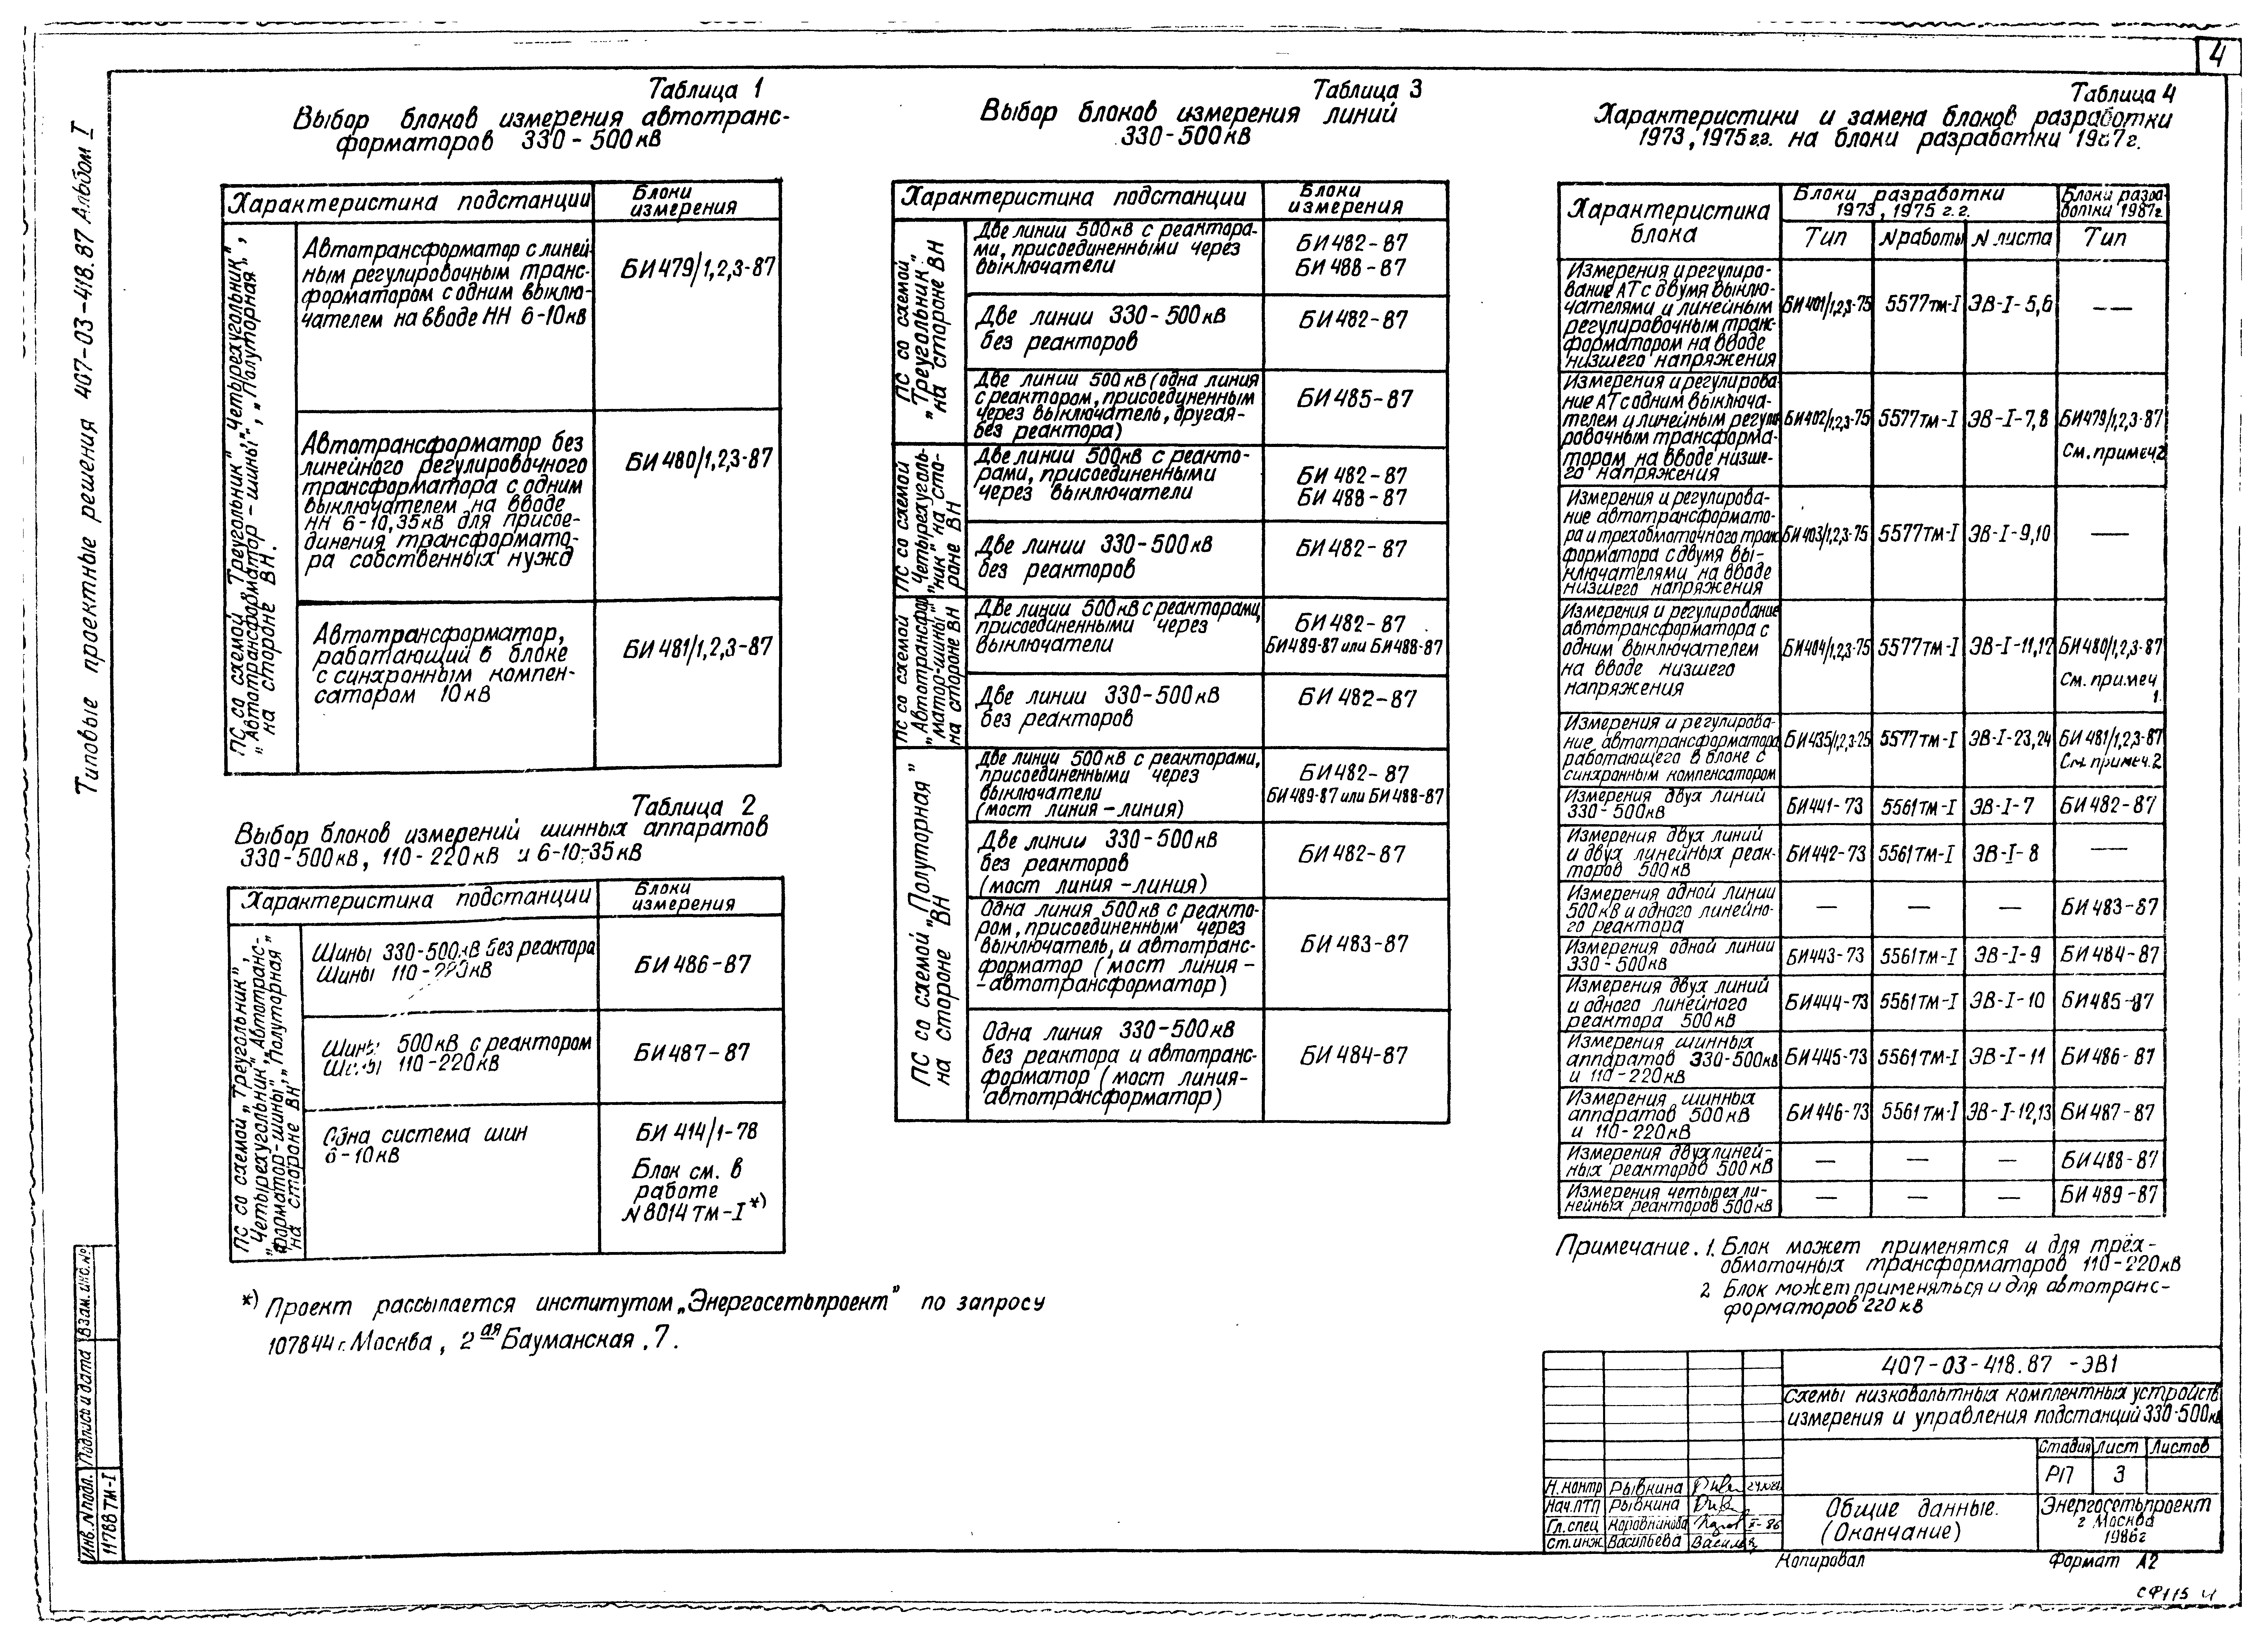 4
Типовые проектные решения 407-03-418.87 Альбом I
Таблица 1
Выбор блоков измерения автотранс-
форматоров 330-500кВ
Характеристика подстанции
Блоки
измерения
ПС со схемой „Треугольник", „Четырехугольник",
„Автотрансформатор-шины", „Полуторная"
на стороне ВН.
Автотрансформатор с линей-
ным регулировочным транс-
форматором с одним выклю-
чателем на вводе НН 6-10кВ
БИ479/1,2,3-87
Автотрансформатор без
линейного регулировочного
трансформатора с одним
выключателем на вводе
НН 6-10,35кВ для присое-
динения трансформато-
ра собственных нужд
БИ480/1,2,3-87
Автотрансформатор,
работающий в блоке
с синхронным компен-
сатором 10кВ
БИ481/1,2,3-87
Таблица 2
Выбор блоков измерений шинных аппаратов
330-500кВ, 110-220кВ и 6-10-35кВ
Характеристика подстанции
Блоки
измерения
ПС со схемой „Треугольник",
„Четырехугольник", „Автотранс-
форматор-шины", „Полуторная"
на стороне ВН
Шины 330-500кВ без реактора
Шины 110-220кВ
БИ486-87
Шины 500кВ с реактором
Шины 110-220кВ
БИ487-87
Одна система шин
6-10кВ
БИ 414/1-78
Блок см. в
работе
N8014тм-I*)
*) Проект рассылается институтом „Энергосетьпроект" по запросу
107844 г. Москва, 2ая Бауманская, 7.
Таблица 3
Выбор блоков измерения линий
330-500кВ
Характеристика подстанции
Блоки
измерения
ПС со схемой
„Треугольник"
на стороне ВН
Две линии 500кВ с реактора-
ми, присоединенными через
выключатели
БИ482-87
БИ488-87
Две линии 330-500кВ
без реакторов
БИ482-87
Две линии 500кВ (одна линия
с реактором, присоединенным
через выключатель, другая-
без реактора)
БИ485-87
ПС со схемой
„Четырехуголь-
ник" на сто-
роне ВН
Две линии 500кВ с реакто-
рами, присоединенными
через выключатели
БИ 482-87
БИ 488-87
Две линии 330-500кВ
без реакторов
БИ482-87
ПС со схемой
„Автотрансфор
матор-шины"
на стороне ВН
Две линии 500кВ с реакторами,
присоединенными через
выключатели
БИ482-87
БИ489-87 или БИ488-87
Две линии 330-500кВ
без реакторов
БИ 482-87
ПС со схемой „Полуторная"
на стороне ВН
Две линии 500кВ с реакторами,
присоединенными через
выключатели
(мост линия-линия)
БИ482-87
БИ489-87 или БИ488-87
Две линии 330-500кВ
без реакторов
(мост линия-линия)
БИ482-87
Одна линия 500кВ с реакто-
ром, присоединенным через
выключатель, и автотранс-
форматор (мост линия-
-автотрансформатор)
БИ483-87
Одна линия 330-500кВ
без реактора и автотранс-
форматор (мост линия-
автотрансформатор)
БИ484-87
Таблица 4
Характеристики и замена блоков разработки
1973, 1975г.г. на блоки разработки 1987г.
Характеристика
блока
Блоки разработки
1973, 1975 г.г.
Блоки разра-
ботки 1987г.
Тип
N работы
N листа
Тип
Измерения и регулиро-
вание АТ с двумя выклю-
чателями и линейным
регулировочным транс-
форматором на вводе
низшего напряжения
БИ401/1,2,3-75 5577тм-I ЭВ-I-5,6 —
Измерения и регулирова-
ние АТ с одним выключа-
телем и линейным регули
ровочным трансформа-
тором на вводе низше-
го напряжения
БИ402/1,2,3-75 5577тм-I ЭВ-I-7,8 БИ479/1,2,3-87
См. примеч.2
Измерения и регулирова-
ние автотрансформато-
ра и трехобмоточного транс
форматора с двумя вы-
ключателями на вводе
низшего напряжения
БИ403/1,2,3-75 5577тм-I ЭВ-I-9,10 —
Измерения и регулирование
автотрансформатора с
одним выключателем
на вводе низшего
напряжения
БИ404/1,2,3-75 5577тм-I ЭВ-I-11,12 БИ480/1,2,3-87
См. примеч
1.
Измерения и регулирова-
ние автотрансформатора,
работающего в блоке с
синхронным компенсатором
БИ435/1,2,3-25 5577тм-I ЭВ-I-23,24 БИ 481/1,2,3-87
См. примеч.2
Измерения двух линий
330-500кВ
БИ441-73 5561тм-I ЭВ-I-7 БИ482-87
Измерения двух линий
и двух линейных реак-
торов 500кВ
БИ442-73 5561тм-I ЭВ-I-8 —
Измерения одной линии
500кВ и одного линейно-
го реактора
— — — БИ483-87
Измерения одной линии
330-500кВ
БИ443-73 5561тм-I ЭВ-I-9 БИ484-87
Измерения двух линий
и одного линейного
реактора 500кВ
БИ444-73 5561тм-I ЭВ-I-10 БИ485-87
Измерения шинных
аппаратов 330-500кВ
и 110-220кВ
БИ445-73 5561тм-I ЭВ-I-11 БИ486-87
Измерения шинных
аппаратов 500кВ
и 110-220кВ
БИ446-73 5561тм-I ЭВ-I-12,13 БИ487-87
Измерения двух линей-
ных реакторов 500кВ
— — — БИ488-87
Измерения четырех ли-
нейных реакторов 500кВ
— — — БИ489-87
Примечание. 1. Блок может применятся и для трёх-
обмоточных трансформаторов 110-220кВ
2 Блок может применяться и для автотранс-
форматоров 220 кВ
407-03-418.87 -ЭВ1
Схемы низковольтных комплектных устройств
измерения и управления подстанций 330-500кВ
Стадия Лист Листов
РП 3
Н.контр Рывкина
Нач.ПТП Рывкина
Гл.спец Коровникова
Ст.инж. Васильева
Общие данные.
(Окончание)
Энергосетьпроект
г Москва
1986г
Копировал
Формат А2
СФ115
Инв. N подл. Подпись и дата Взам. инв. №
11788ТМ-I